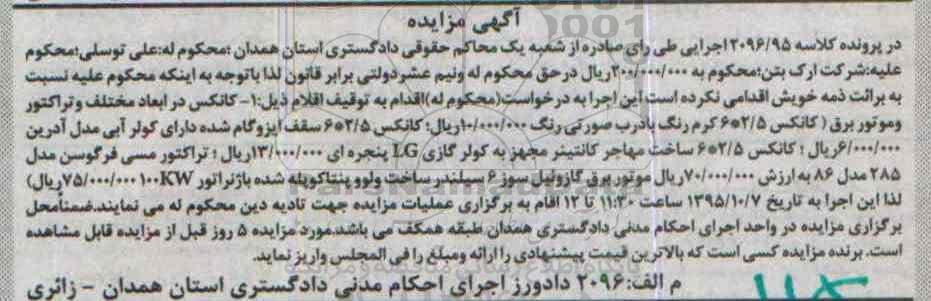 آگهی مزایده
در پرونده کلاسه ۲۰۹۶/۹۵ اجرایی طی رای صادره از شعبه یک محاکم حقوقی دادگستری استان همدان ؛محکوم له:علی توسلی؛محکوم
علیه:شرکت ارک بتن؛محکوم به ۲۰۰/۰۰۰/۰۰۰ریال درحق محکوم له ونیم عشردولتی برابر قانون لذا باتوجه به اینکه محکوم علیه نسبت
به برائت ذمه خویش اقدامی نکرده است این اجرا به درخواست(محکوم له)اقدام به توقیف اقلام ذیل:۱- کانکس در ابعاد مختلف وتراکتور
وموتور برق ( کانکس ۲/۵*۶ کرم رنگ بادرب صورتی رنگ ۱۰/۰۰۰/۰۰۰ریال؛ کانکس ۳/۵*۶ سقف ایزوگام شده دارای کولر آبی مدل آدرین
۶/۰۰۰/۰۰۰ریال ؛ کانکس ۲/۵*۶ ساخت مهاجر کانتینر مجهز به کولر گازی LG پنجره ای ۱۳/۰۰۰/۰۰۰ریال ؛ تراکتور مسی فرگوسن مدل
۲۸۵ مدل ۸۶ به ارزش ۷۰/۰۰۰/۰۰۰ریال موتور برق گازوئیل سوز ۶ سیلندر ساخت ولوو پنتاکوپله شده باژنراتور ۱۰۰KW ۷۵/۰۰۰/۰۰۰ریال)
لذا این اجرا به تاریخ ۱۳۹۵/۱۰/۷ ساعت ۱۱:۳۰ تا ۱۲ اقام به برگزاری عملیات مزایده جهت تادیه دین محکوم له می نمایند.ضمنامحل
برگزاری مزایده در واحد اجرای احکام مدنی دادگستری همدان طبقه همکف می باشد.مورد مزایده ۵ روز قبل از مزایده قابل مشاهده
است. برنده مزایده کسی است که بالاترین قیمت پیشنهادی را ارائه ومبلغ را فی المجلس واریز نماید.
م الف:۲۰۹۶ دادورز اجرای احکام مدنی دادگستری استان همدان - زائری